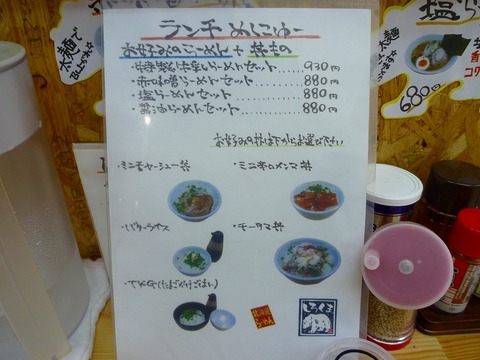 ランチ めにゅー
お好みのらーめん + 丼もの
・特製辛味らーめんセット・・・930円
・赤味噌らーめんセット・・・・880円
・塩らーめんセット・・・・・880円
・醤油らーめんセット・・・・880円
お好みの丼は下からお選び下さい
・ミニチャーシュー丼
・ミニ辛口メンマ丼
・バターライス
・チータマ丼
・TKG(たまごかけごはん)
しろくま
塩ら
680円
太麺で